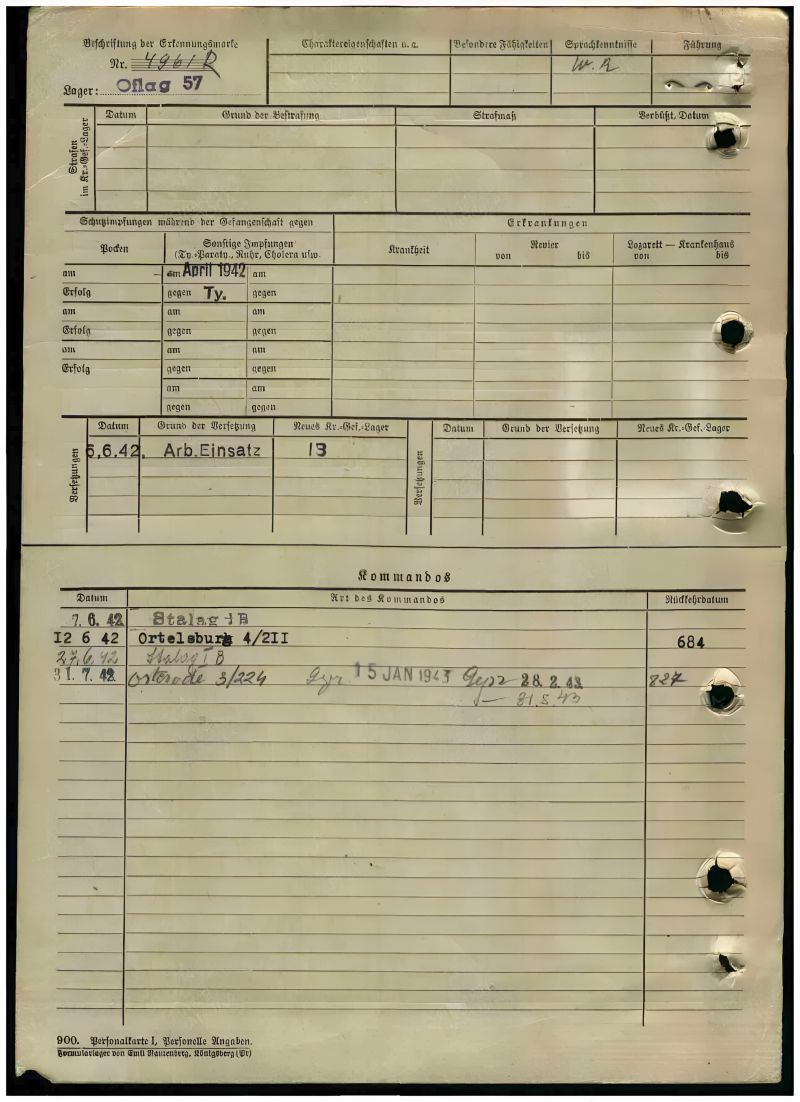 Beschriftung der Erkennungsmarke
Nr. 4961 R
Lager: Oflag 57
Charaktereigenschaften u.a.
Besondere Fähigkeiten
Sprachkenntnisse
Führung
W. R
Strafen im Kr.-Gef.-Lager
Datum
Grund der Bestrafung
Strafmaß
Verbüßt, Datum
Schutzimpfungen während der Gefangenschaft gegen
Erkrankungen
Pocken
Sonstige Impfungen
(Ty.-Paraty., Ruhr, Cholera usw.
Krankheit
Revier
von bis
Lazarett — Krankenhaus
von bis
am am April 1942 am
Erfolg gegen Ty. gegen
am am am
Erfolg gegen gegen
am am am
Erfolg gegen gegen
am am
gegen gegen
Versetzungen
Datum Grund der Versetzung Neues Kr.-Gef.-Lager
6.6.42. Arb.Einsatz 1B
Versetzungen
Datum Grund der Versetzung Neues Kr.-Gef.-Lager
Kommandos
Datum Art des Kommandos Rückkehrdatum
7. 6. 42 Stalag 1B
12 6 42 Ortelsburg 4/2II 684
27.6.42 Stalag I B
31. 7. 42 Osterode 3/224 15 JAN 1943 28.2.43 827
— 31.5.43
900. Personalkarte I, Personelle Angaben.
Formularlager von Emil Rautenberg, Königsberg (Pr)